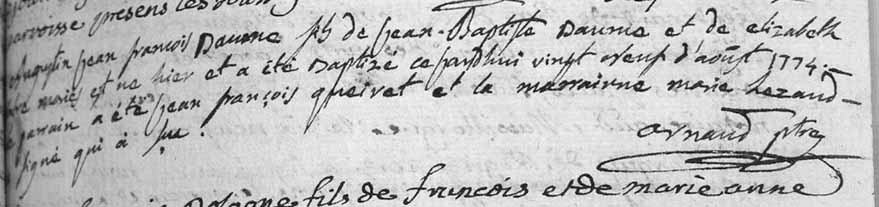 parroisse presens les
augustin jean francois Daume fils de jean-Baptiste Daume et de elizabeth
mariés est né hier et a été Baptizé ce jourdhui vingt neuf d'aoust 1774.
le parrain a été jean françois queiret et la marrainne marie
signé qui a su.
arnaud ptre
fils de francois et de marie anne